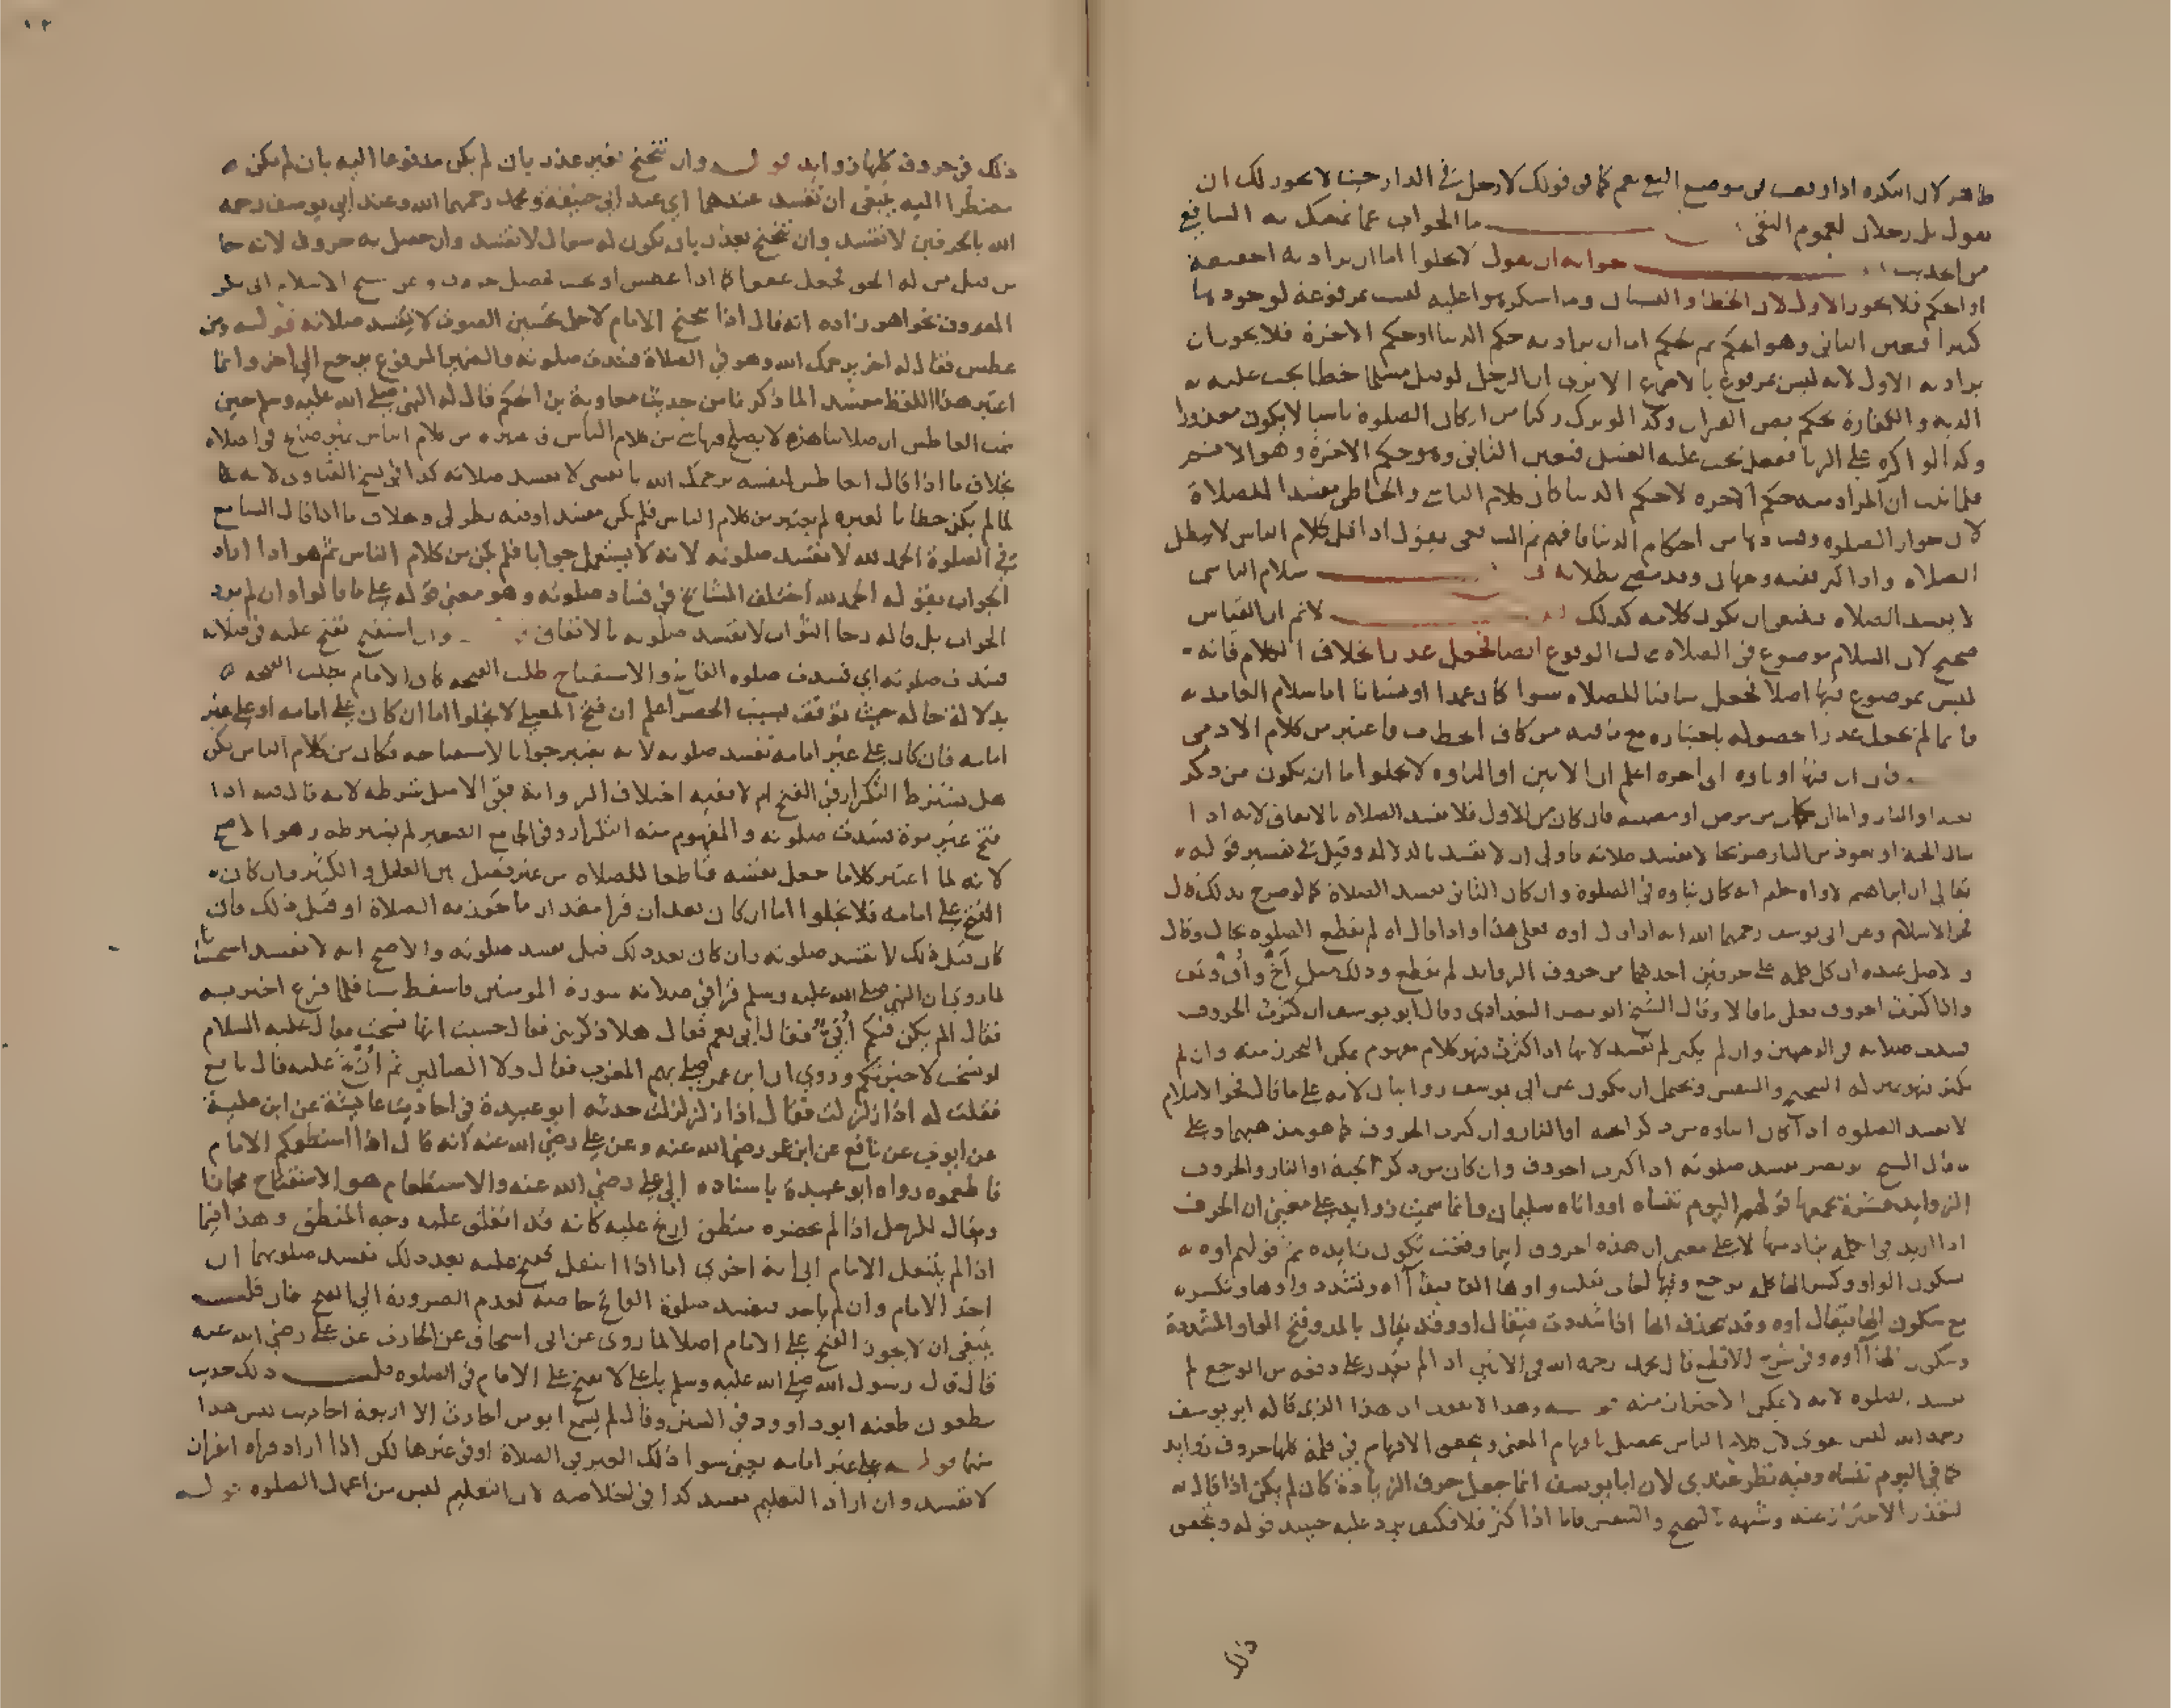 ظاهر لان النكرة اذا وقعت في موضع النفي تعم كما في قولك لا رجل في الدار حيث لا يجوز لك ان
تقول بل رجلان لعموم النفي ما الجواب عما تمسك به الشافعي
من الحديث جوابه ان نقول لا يخلوا اما ان يراد به الحقيقة
او الحكم فلا يجوز الاول لان الخطا والنسيان وما استكرهوا عليه ليست بمرفوعة لوجودها
كثيرا فتعين الثاني وهو الحكم ثم الحكم اما ان يراد به حكم الدنيا او حكم الاخرة فلا يجوز ان
يراد به الاول لانه ليس بمرفوع بالاجماع الا ترى ان الرجل لو قتل مسلما خطا يجب عليه
الدية والكفارة بحكم نص القران وكذا لو ترك ركنا من اركان الصلوة ناسيا لا يكون معذورا
وكذا لو اكره على الزنا ففعل يجب عليه الغسل فتعين الثاني وهو حكم الاخرة وهو الاثم
فلما ثبت ان المراد منه حكم الاخرة لا حكم الدنيا كان كلام الناسي والخاطي مفسدا للصلاة
لان جواز الصلوة وفسادها من احكام الدنيا فافهم ثم الشافعي يقول اذا قل كلام الناس لا يبطل
الصلاة واذا كثر ففيه وجهان سلام الناسي
لا يفسد الصلاة فينبغي ان يكون كلامه كذلك لا نم ان القياس
صحيح لان السلام موضوع في الصلاة الوقوع ايضا فجعل عذرا بخلاف الكلام فانه
ليس بموضوع فيها اصلا فجعل منافيا للصلاه سوا كان عمدا او نسيانا اما سلام العامد
فانما لم يجعل عذرا حصوله باختياره مع ما فيه من كاف الخطاب فاعتبر من كلام الادمي
فان ان فيها او تاوه الى اخره اعلم ان الانين او التاوه لا يخلوا اما ان يكون من ذكر
الجنة او النار واما ان كان من مرض او مصيبة فان كان من الاول فلا تفسد الصلاه بالاتفاق لانه اذا
سال الجنة او تعوذ من النار صريحا لا تفسد صلاته فاولى ان لا تفسد بالدلالة وقيل في تفسير قوله
تعالى ان ابراهيم لاواه حليم انه كان يتاوه في الصلوة وان كان الثاني تفسد الصلاة كما لو صرح بذلك قال
فخر الاسلام وعن ابي يوسف رحمهما الله انه اذا قال اوه فعلى هذا واذا قال اه لم تقطع الصلوه بحال وقال
والاصل عنده ان كل كلمة على حرفين احدهما من حروف الزوايد لم تقطع وذلك مثل اخ واف وتف
واذا كثرت الحروف فعلى ما قالا وقال الشيخ ابو نصر البغدادي وقال ابو يوسف ان كثرت الحروف
فسدت صلاته في الوجهين وان لم يكثر لم تفسد لانها اذا كثرت فهو كلام مفهوم يمكن التحرز منه وان لم
يكثر فهو بمنزلة التنحنح والتنفس ويحتمل ان يكون عن ابي يوسف روايتان لانه على ما قال فخر الاسلام
لا تفسد الصلوه اذا كان التاوه من ذكر الجنة او النار وان كثرت الحروف كما هو مذهبهما وعلى
ما قال الشيخ ابو نصر تفسد صلوته اذا كثرت الحروف وان كان من ذكر الجنة او النار والحروف
الزوايد عشرة يجمعها قولهم اليوم تنساه او واتاه سليمان وانما سميت زوايد على معنى ان الحرف
اذا اريد في الكلمة يزاد منها لا على معنى ان هذه الحروف اينما وقعت تكون زايده ثم قولهم اوه
بسكون الواو وكسر الها كلمة توجع وفيها لغات تقلب واوها الفا فيقال اه وتشدد واوها وتكسر
مع سكون الها فيقال اوه وقد تحذف الها اذا شددت فيقال او وقد يقال بالمد وفتح الواو المشددة
وسكون الها اوه وفي شرح الاقطع قال محمد رحمه الله في الانين اذا لم يقدر على دفعه من الوجع لم
تفسد الصلوه لانه لا يمكن الاحتراز منه قوله وهذا لا يقوى اي هذا الذي قاله ابو يوسف
رحمه الله ليس بقوي لان كلام الناس يحصل بافهام المعنى ويتحقق الافهام في كلمة كلها حروف زوايد
كما في اليوم تنساه وفيه نظر عندي لان ابا يوسف انما جعل حرف الزيادة كان لم يكن اذا قال
لتعذر الاحتراز عنه وشبهه بالتنحنح والتنفس فاما اذا كثر فلا فكيف يرد عليه حينئذ قوله ويتحقق
ذلك
١٢
ذلك في حروف كلها زوايد قوله وان تنحنح بغير عذر بان لم يكن مدفوعا اليه بان لم يكن
مضطرا اليه ينبغي ان تفسد عندهما اي عند ابي حنيفة ومحمد رحمهما الله وعند ابي يوسف رحمه
الله بالحرفين لا تفسد وان تنحنح بعذر بان يكون له سعال لا تفسد وان حصل به حروف لانه جا
من قبل من له الحق فجعل عفوا كما اذا عطس او تجشا فحصل حروف وعن شيخ الاسلام ابي بكر
المعروف بخواهر زاده انه قال اذا تنحنح الامام لاجل تحسين الصوت لا تفسد صلاته قوله ومن
عطس فقال له اخر يرحمك الله وهو في الصلاة فسدت صلوته والضمير المرفوع يرجع الى اخر وانما
اعتبر هذا اللفظ مفسدا لما ذكرنا من حديث معاوية بن الحكم قال له النبي صلى الله عليه وسلم حين
شمت العاطس ان صلاتنا هذه لا يصلح فيها شي من كلام الناس
بخلاف ما اذا قال العاطس لنفسه يرحمك الله يا نفسي لا تفسد صلاته كذا في الفتاوى لانه
لما لم يكن خطابا لغيره لم يعتبر من كلام الناس فلم يكن مفسدا وفيه نظر وبخلاف ما اذا قال السامع
في الصلوة الحمد لله لا تفسد صلوته لانه لا يستعمل جوابا فلم يكن من كلام الناس ثم هو اذا اراد
الجواب بقوله الحمد لله اختلف المشايخ في فساد صلوته وهو معنى قوله على ما قالوا وان لم يرد
الجواب بل قاله رجا الثواب لا تفسد صلوته بالاتفاق وان استفتح ففتح عليه في صلاته
فسدت صلوته اي فسدت صلوه الفاتح والاستفتاح طلب الفتح كان الامام يطلب الفتح
بدلالة حاله حيث توقف بسبب الحصر اعلم ان فتح المصلي لا يخلوا اما ان كان على امامه او على غير
امامه فان كان على غير امامه تفسد صلوته لانه يعتبر جوابا لاستفتاحه فكان من كلام الناس لكن
هل يشترط التكرار في الفتح ام لا ففيه اختلاف الرواية ففي الاصل شرطه لانه قال فيه اذا
فتح غير مرة فسدت صلوته والمفهوم منه التكرار وفي الجامع الصغير لم يشترطه وهو الاصح
لانه لما اعتبر كلاما جعل نفسه قاطعا للصلاه من غير فصل بين القليل والكثير وان كان
الفتح على امامه فلا يخلوا اما ان كان بعد ان قرا مقدار ما تجوز به الصلاة او قبل ذلك فان
كان قبل ذلك لا تفسد صلوته وان كان بعد ذلك قيل تفسد صلوته والاصح انه لا تفسد استحسانا
لما روي ان النبي صلى الله عليه وسلم قرا في صلاته سورة المومنين فاسقط شيا فلما فرغ اخبر به
فقال الم يكن فيكم ابي فقال ابي نعم فقال هلا ذكرتني فقال حسبت انها نسخت فقال عليه السلام
لو نسخت لاخبرتكم وروي ان ابن عمر صلى بهم المغرب فقال ولا الضالين ثم ارتج عليه فقال نافع
فقلت له اذا زلزلت فقال اذا زلزلت حدثه ابو عبيدة في احاديث عاليته عن ابن علية
عن ايوب عن نافع عن ابن عمر رضي الله عنه وعن علي رضي الله عنه انه قال اذا استطعمكم الامام
فاطعموه رواه ابو عبيدة باسناده الى علي رضي الله عنه والاستطعام هو الاستفتاح مجازا
ويقال للرجل اذا لم يحضره منطق ارتج عليه كانه قد انغلق عليه وجه المنطق وهذا فيما
اذا لم ينتقل الامام الى اية اخرى اما اذا انتقل ففتح عليه بعد ذلك تفسد صلوتهما ان
اخذ الامام وان لم ياخذ تفسد صلوة الفاتح خاصة لعدم الضرورة الى الفتح فان قلت
ينبغي ان لا يجوز الفتح على الامام اصلا لما روى عن ابي اسحاق عن الحارث عن علي رضي الله عنه
قال قال رسول الله صلى الله عليه وسلم يا علي لا تفتح على الامام في الصلوه قلت ذلك حديث
مطعون طعنه ابو داوود في السنن وقال لم يسمع ابو من الحارث الا اربعة احاديث ليس هذا
منها قوله على غير امامه يعني سوا ذلك الغير في الصلاة او في غيرها لكن اذا اراد قراه القران
لا تفسد وان اراد التعليم تفسد كذا في الخلاصه لان التعليم ليس من اعمال الصلوه قوله